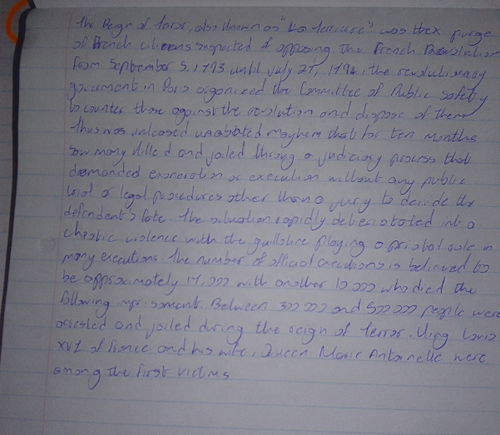 The Reign of Terror, also known as "La terreur" was the purge
of French citizens suspected of opposing the French Revolution
from September 5, 1793 until July 27, 1794. The revolutionary
government in Paris organized the Committee of Public Safety
to counter those against the revolution and dispose of them
Thus was unleased unabated mayhem that for ten months
saw many killed and jailed through a judiciary process that
demanded exoneration or execution without any public
trial or legal procedures other than a jury to decide the
defendent's fate. The situation rapidly deteriorated into a
chaotic violence with the guillotine playing a pivotal role in
many executions. The number of official executions is believed to
be approximately 17,000 with another 10 000 who died the
following imprisonment. Between 300 000 and 500 000 people were
arrested and jailed during the reign of terror. King Louis
XVI of France and his wife, Queen Marie Antoinette were
among the first victims